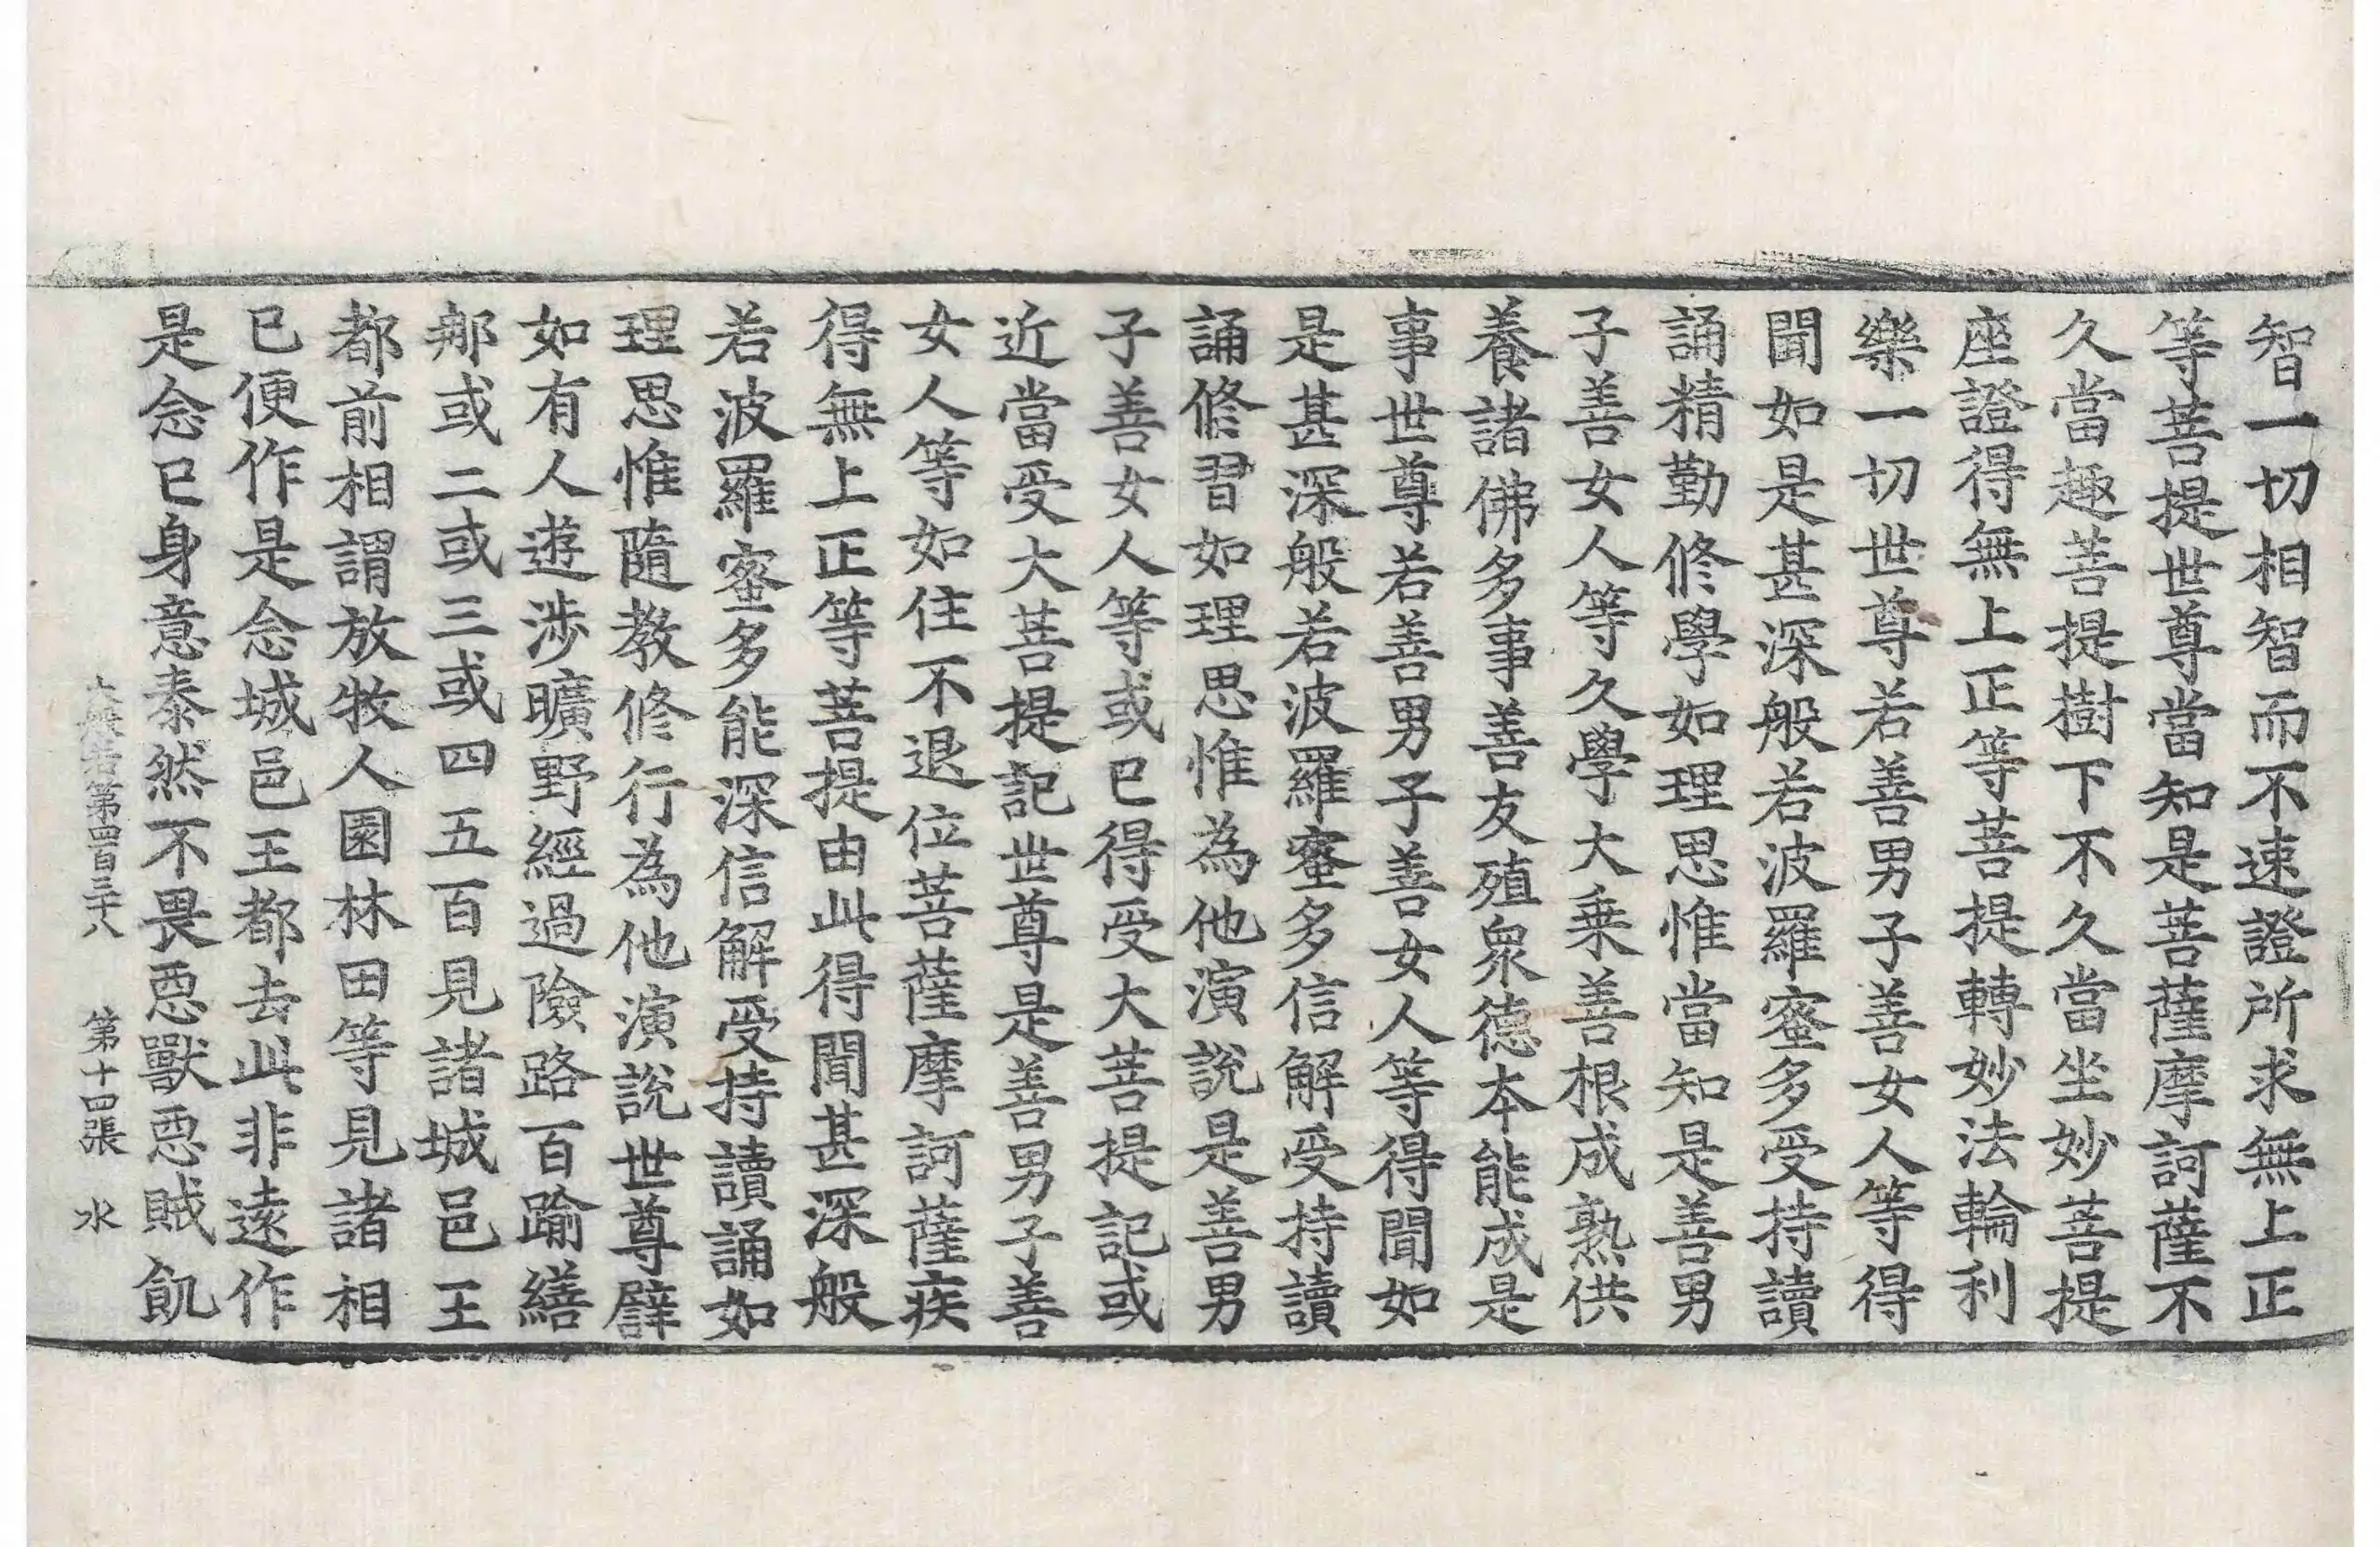 智一切相智而不速證所求無上正
等菩提世尊當知是菩薩摩訶薩不
久當趣菩提樹下不久當坐妙菩提
座證得無上正等菩提轉妙法輪利
樂一切世尊若善男子善女人等得
聞如是甚深般若波羅蜜多受持讀
誦精勤修學如理思惟當知是善男
子善女人等久學大乗善根成熟供
養諸佛多事善友殖衆德本能成是
事世尊若善男子善女人等得聞如
是甚深般若波羅蜜多信解受持讀
誦修習如理思惟為他演說是善男
子善女人等或已得受大菩提記或
近當受大菩提記世尊是善男子善
女人等如住不退位菩薩摩訶薩疾
得無上正等菩提由此得聞甚深般
若波羅蜜多能深信解受持讀誦如
理思惟隨教修行為他演說世尊譬
如有人遊涉曠野經過險路百踰繕
那或二或三或四五百見諸城邑王
都前相謂放牧人園林田等見諸相
已便作是念城邑王都去此非遠作
是念已身意泰然不畏惡獸惡賊飢
大般若第四百三十八 第十四張 水